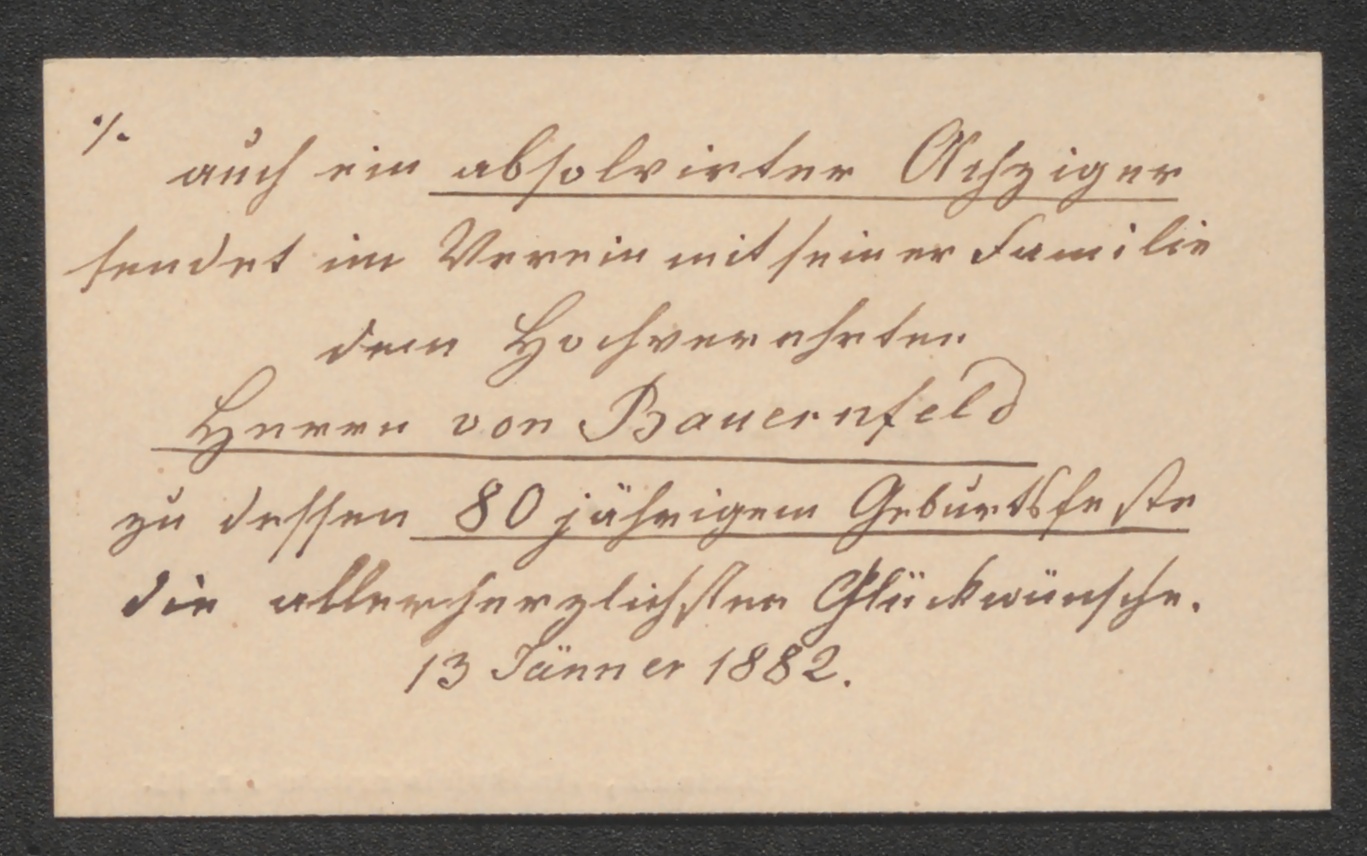 ./.
auch ein absolvirter Achziger
sendet im Verein mit seiner Familie
dem Hochverehrten
Herrn von Bauernfeld
zu dessen 80 jährigem Geburtsfeste
die allerherzlichsten Glückwünsche.
13 Jänner 1882.